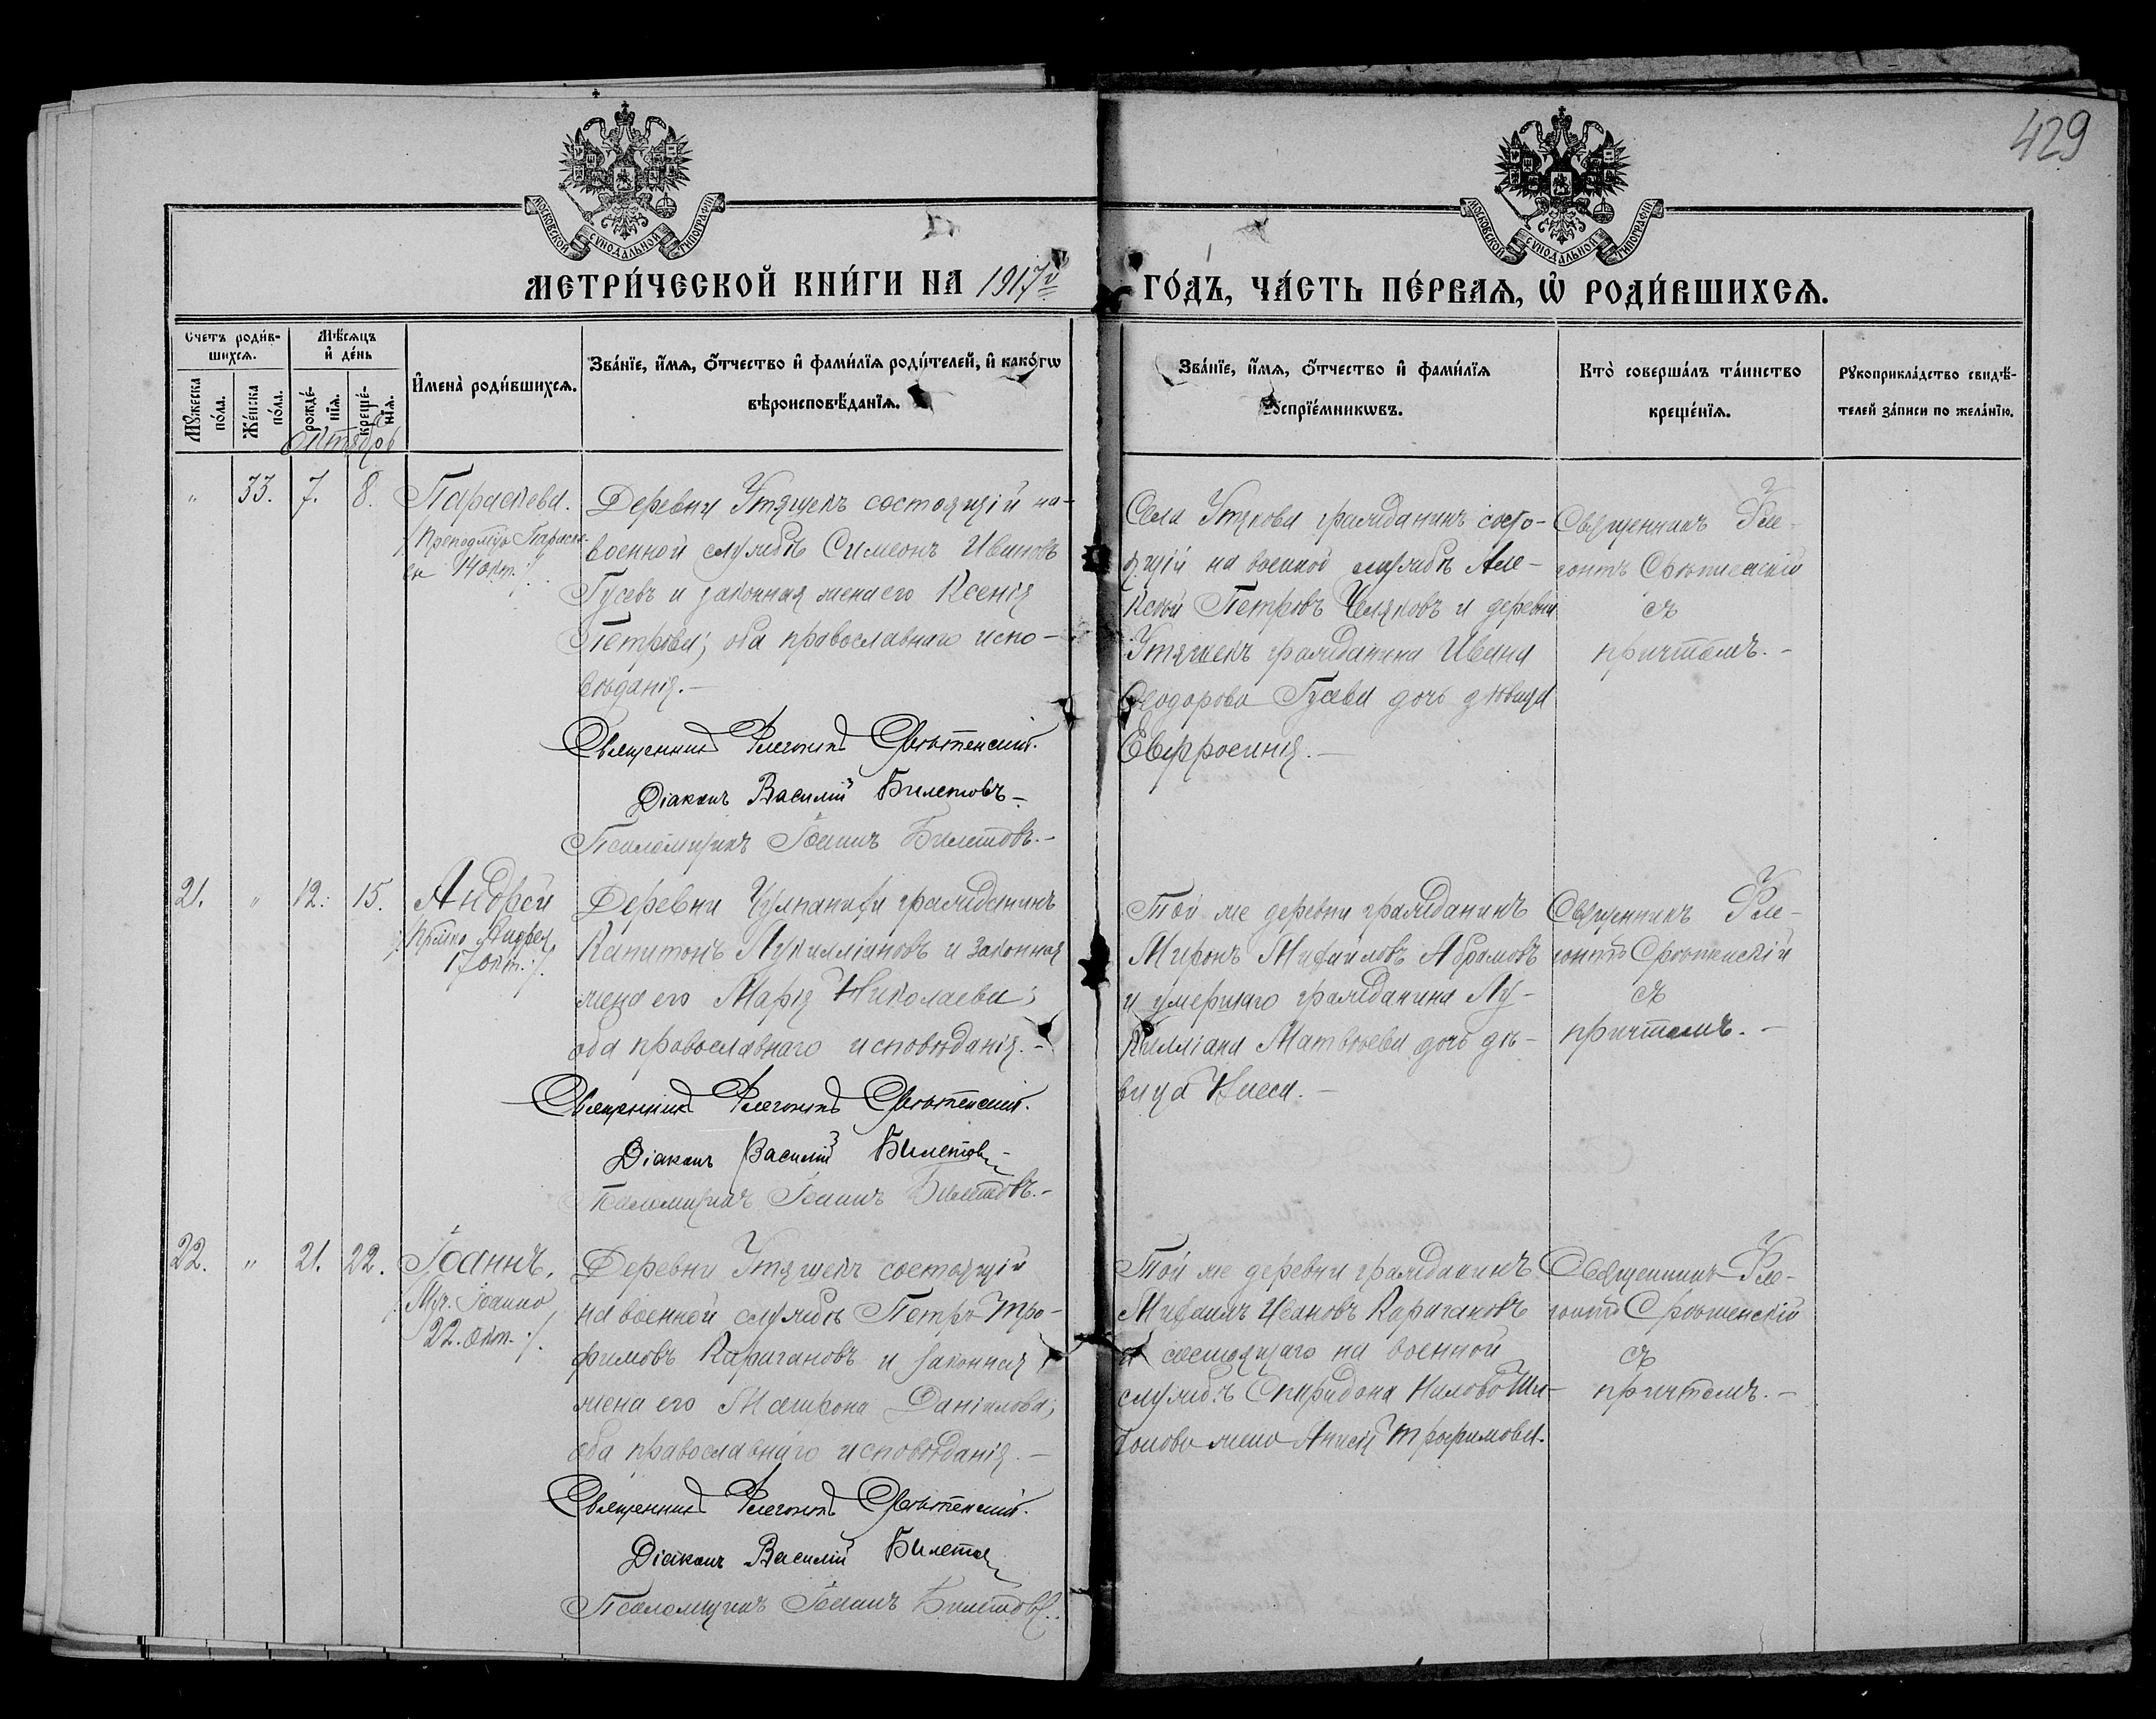 429
МОСКОВСКОЙ СѴНОДАЛЬНОЙ ТИПОГРАФІИ
МОСКОВСКОЙ СѴНОДАЛЬНОЙ ТИПОГРАФІИ
МЕТРИ́ЧЕСКОЙ КНИ́ГИ НА 1917й ГО́ДЪ, ЧА́СТЬ ПЕ́РВАЯ, Ѡ҆ РОДИ́ВШИХСЯ.
Счетъ роди́в-
шихся.
Мꙋжеска по́ла.
Же́нска по́ла.
Мѣ́сяцъ и҆ де́нь
рожде́-нїя.
креще́-нїя.
И҆мена̀ роди́вшихся.
Зва́нїе, и҆́мя, ѻ҆́тчество и҆ фами́лїя роди́телей, и҆ како́гѡ
вѣроисповѣ́данїя.
Зва́нїе, и҆́мя, ѻ҆́тчество и҆ фами́лїя
воспрїе́мникѡвъ.
Кто̀ соверша́лъ та́инство
креще́нїя.
Рꙋкоприкла́дство свидѣ́-
телей за́писи по жела́нїю.
Октябрь
" 33. 7. 8. Параскева.
Преподмц Параске-
вы 14 окт.
Деревни Утяшекъ состоящій на
военной службѣ Симеонъ Ивановъ
Гусевъ и законная жена его Ксенія
Петрова; оба православнаго испо-
вѣданія.—
Священникъ Флегонтъ Срѣтенскій.
Діаконъ Василій Билетовъ—
Псаломщикъ Іоаннъ Билетовъ.—
Села Утякова гражданинъ состо-
ящій на военной службѣ Але-
ксѣй Петровъ и деревни
Утяшекъ гражданина Ивана
Ѳеодорова Гусева дочь дѣвица
Евфросинія.—
Священникъ Фле-
гонтъ Срѣтенскій
съ
причтомъ.—
21. " 12. 15. Андрей
Прпмч Андрея
17 окт.
Деревни гражданинъ
Капитонъ Лукилліановъ и законная
жена его Марія Николаева;
оба православнаго исповѣданія.—
Священникъ Флегонтъ Срѣтенскій.
Діаконъ Василій Билетовъ—
Псаломщикъ Іоаннъ Билетовъ.—
Той же деревни гражданинъ
Миронъ Михаиловъ Абрамовъ
и умершаго гражданина Лу-
килліана Матвѣева дочь дѣ-
вица
Священникъ Фле-
гонтъ Срѣтенскій
съ
причтомъ.—
22. " 21. 22. Іоаннъ.
Іоанна
22. окт.
Деревни Утяшекъ состоящій
на военной службѣ Петръ Тро-
фимовъ Карагановъ и законная
жена его Матрона Даніилова;
оба православнаго исповѣданія.—
Священникъ Флегонтъ Срѣтенскій.
Діаконъ Василій Билетовъ
Псаломщикъ Іоаннъ Билетовъ.
Той же деревни гражданинъ
Михаилъ Ивановъ Карагановъ
и состоящаго на военной
службѣ Спиридона Нилова
жена Анисія Трофимова.
Священникъ Фле-
гонтъ Срѣтенскій
съ
причтомъ.—